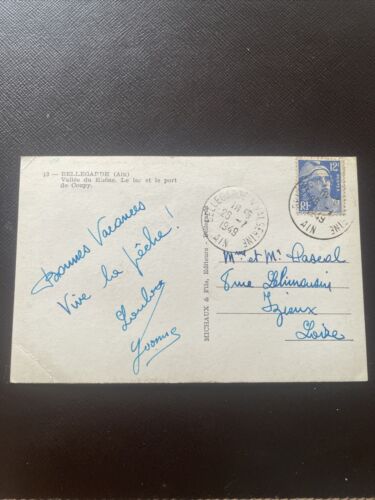 13 — BELLEGARDE (Ain)
Vallée du Rhône. Le lac et le port
de Coupy.
Bonnes Vacances
Vive la pêche!
Yvonne
MICHAUX & Fils, Editeurs - Bellegarde
BELLEGARDE
AIN
26 - 7
1949
12F
RF
Mme et Mr Pascal
Rue
Izieux
Loire